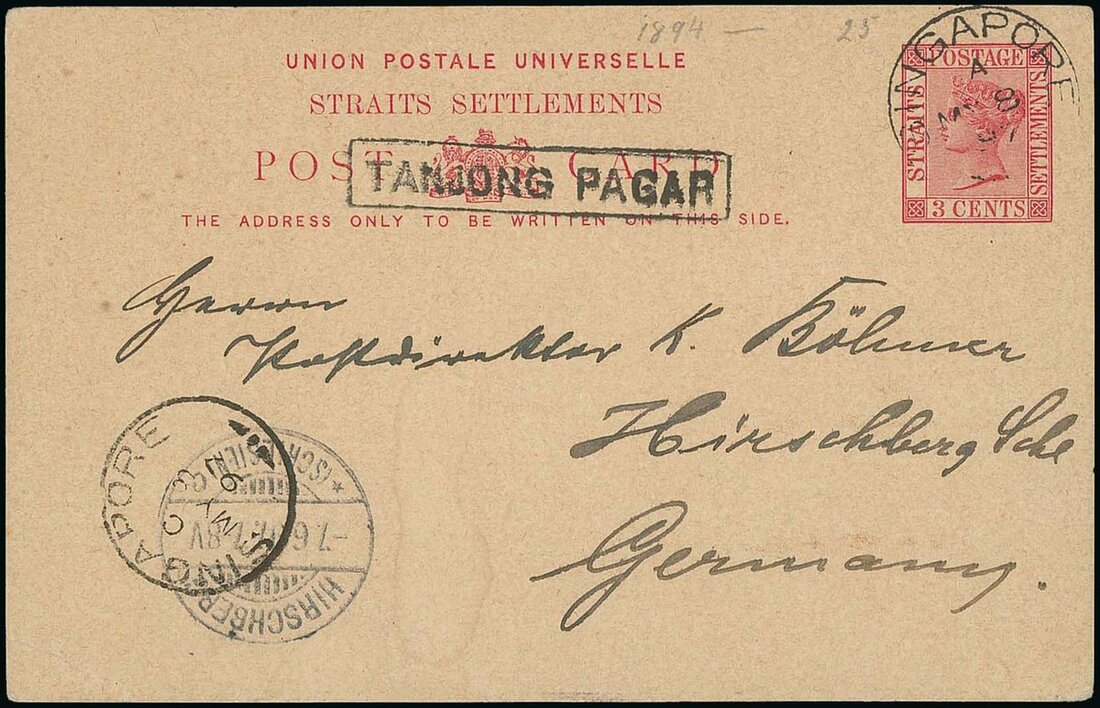 1894 — 25
UNION POSTALE UNIVERSELLE
STRAITS SETTLEMENTS
POST CARD
THE ADDRESS ONLY TO BE WRITTEN ON THIS SIDE.
TANJONG PAGAR
POSTAGE
STRAITS
SETTLEMENTS
3 CENTS
SINGAPORE
A
Herrn
Postdirektor K. Böhmer
Hirschberg Schl
Germany.
SINGAPORE
C
MY
HIRSCHBERG
(SCHLESIEN)